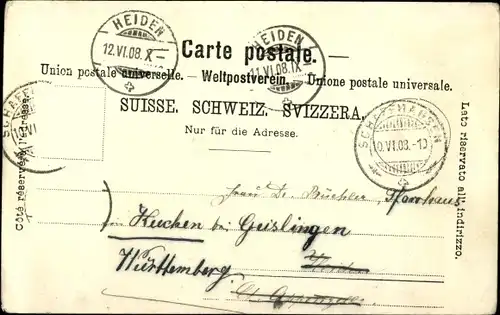 HEIDEN
12.VI.08.X-
Carte postale.
HEIDEN
11.VI.08.IX
Union postale universelle. - Weltpostverein. - Unione postale universale.
SUISSE. SCHWEIZ. SVIZZERA.
Nur für die Adresse.
SCHAFFHAUSEN
VI
SCHAFFHAUSEN
10.VI.08.-10
Côté réservé à l'adresse.
Lato riservato all'indirizzo.
Frau Dr. Büchler, Pfarrhaus
Kuchen bei Geislingen
Württemberg
Heiden
Ct. Appenzell